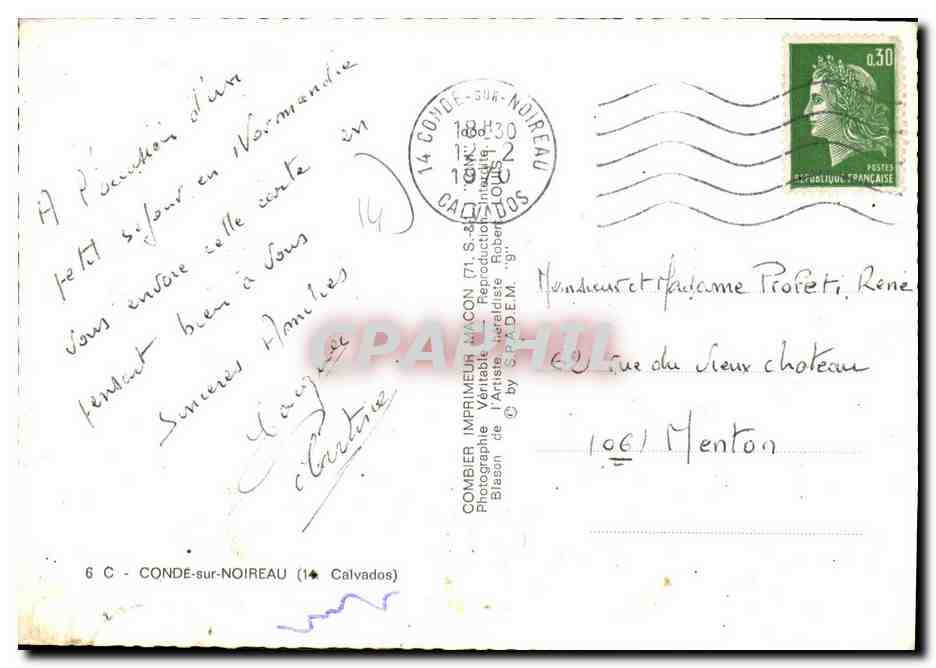 A l'occasion d'un
petit séjour en Normandie
vous envoie cette carte en
pensant bien à vous
Sincères Amitiés
(14)
14 CONDÉ-SUR-NOIREAU
18H30
12-2
1970
CALVADOS
0,30
POSTES
RÉPUBLIQUE FRANÇAISE
COMBIER IMPRIMEUR MACON (71, S.-&
Photographie Véritable. Reproduction Interdite.
Blason de l'Artiste héraldiste Robert LOUIS
© by S.P.A.D.E.M. "9"
Monsieur et Madame René
62 rue du vieux chateau
(06) Menton
CPAPHIL
6 C - CONDÉ-sur-NOIREAU (14 Calvados)